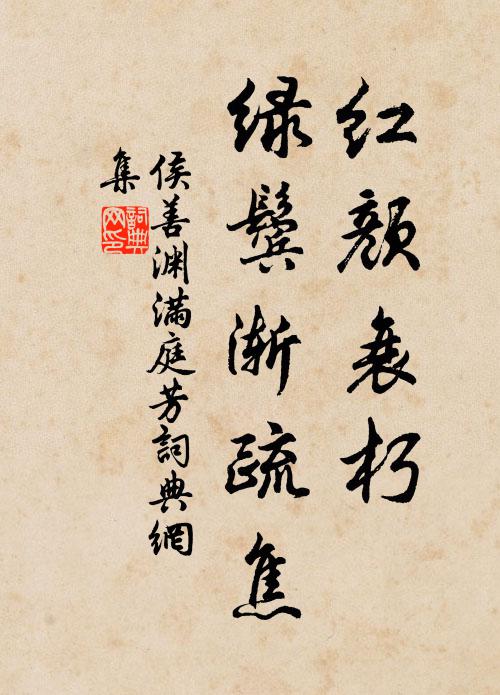 红颜衰朽
绿鬓渐疏焦
侯善渊满庭芳词典网
集
词典网印